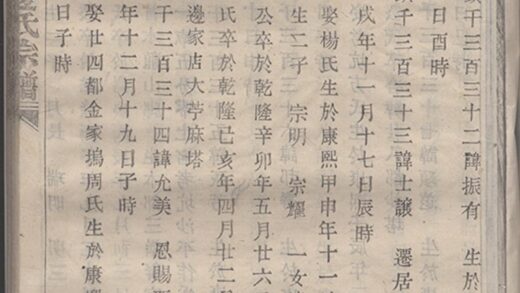 千三百三十二諱振有　生於
日酉時
千三百三十三諱士讓　遷居
戌年十一月十七日辰時
娶楊氏生於康熙甲申年十一
生二子　宗明　宗耀　一女
公卒於乾隆辛卯年五月廿六
氏卒於乾隆己亥年四月廿二
邊家店大苧麻塔
千三百三十四諱允美　恩賜
年十二月十九日子時
娶廿四都金家塢周氏生於康
日子時
氏宗譜